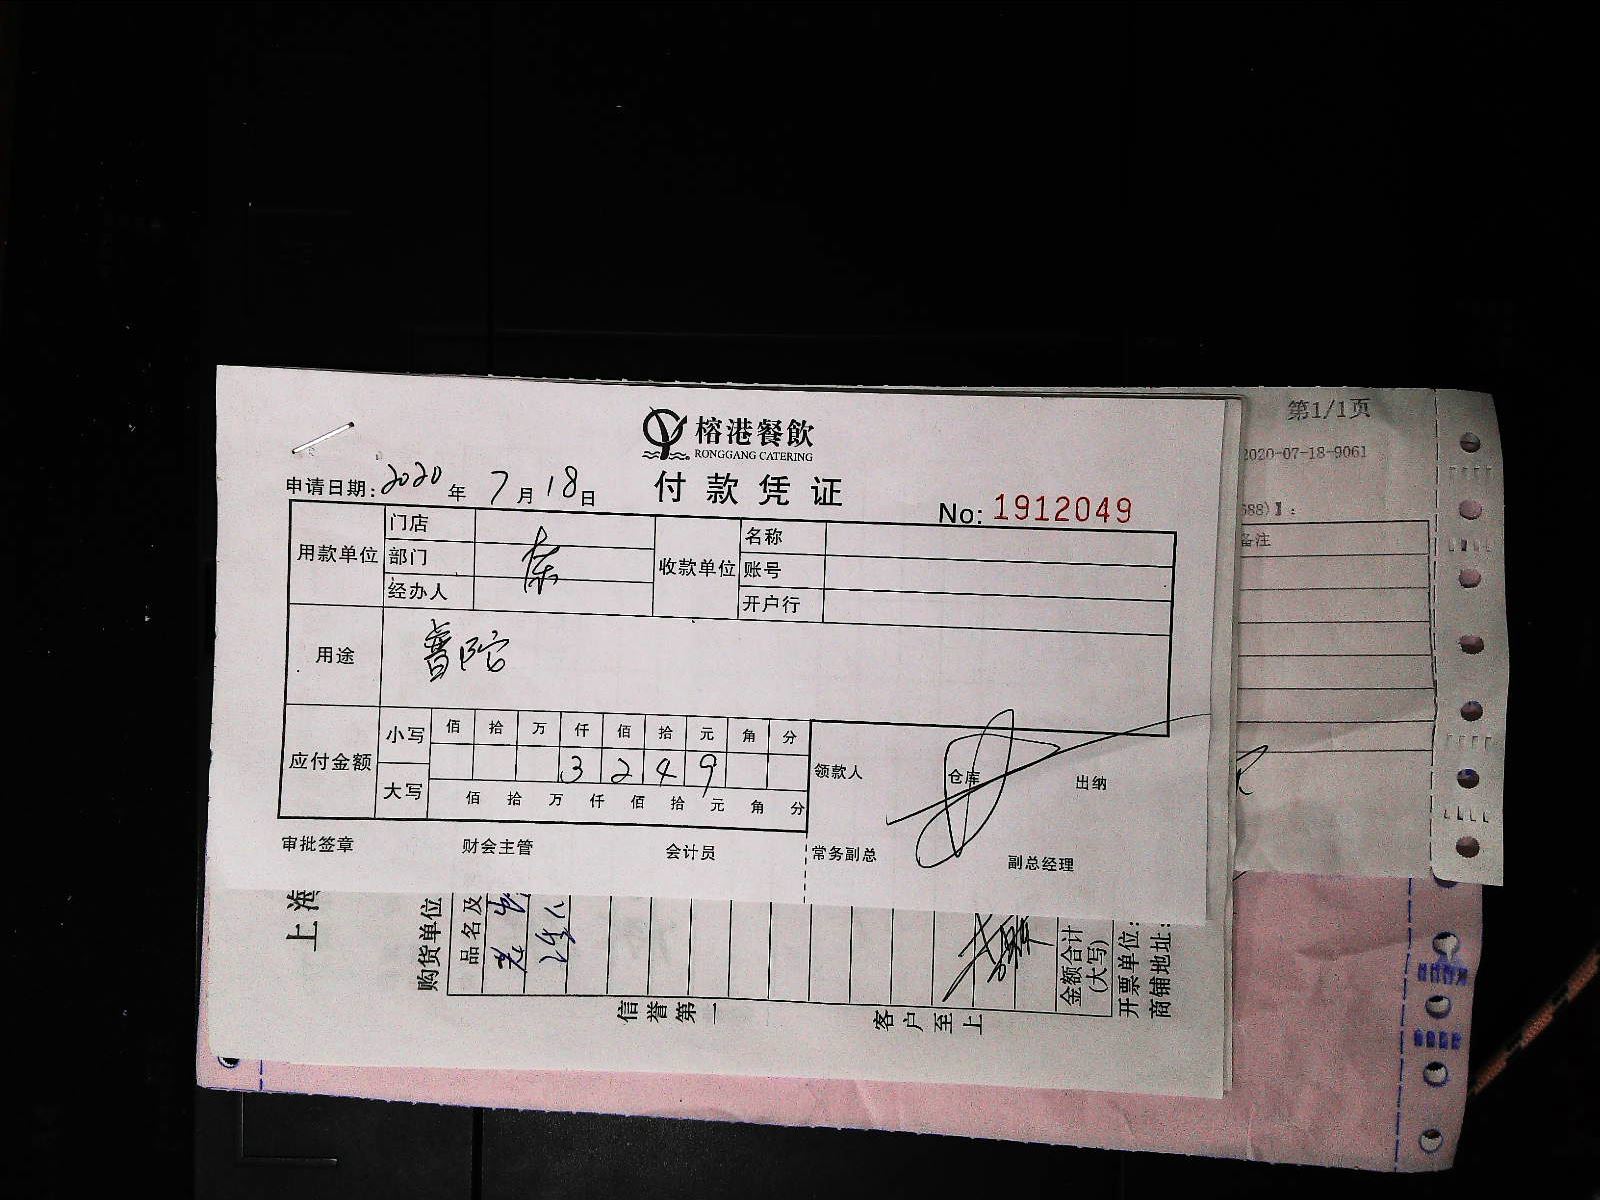 榕港餐飲
RONGGANG CATERING
付款凭证
申请日期:2020年7月18日
No: 1912049
用款单位 门店 收款单位 名称
部门 账号
经办人 开户行
用途 普陀
应付金额 小写 佰 拾 万 仟 佰 拾 元 角 分
3 2 4 9
大写 佰 拾 万 仟 佰 拾 元 角 分
领款人 仓库 出纳
审批签章 财会主管 会计员 常务副总 副总经理
第1/1页
2020-07-18-9061
688)】:
备注
上海
购货单位
品名及
金额合计
(大写)
开票单位:
商铺地址:
信誉第一
客户至上